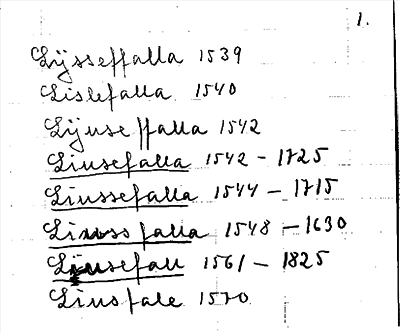 1.
Lijsseffalla 1539
Lislefalla 1540
Lijnseffalla 1542
Linsefalla 1542 - 1725
Linssefalla 1544 - 1715
Linssfalla 1548 - 1630
Linsefall 1561 - 1825
Linsfale 1570